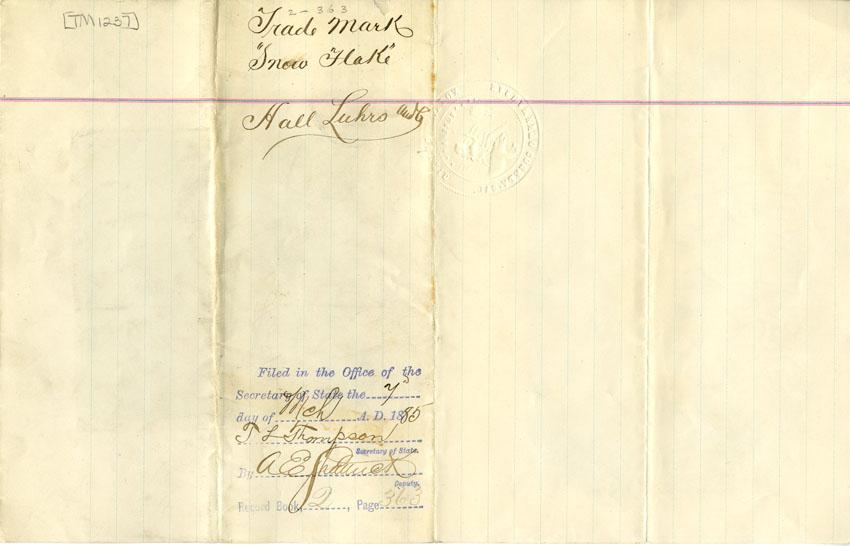 [TM1237]
2-363
Trade Mark
"Snow Flake"
Hall Luhrs and Co
Filed in the Office of the
Secretary of State the 7th
day of Mch A. D. 1885
T L Thompson
Secretary of State.
By A E Shattuck
Deputy.
Record Book, 2, Page 363